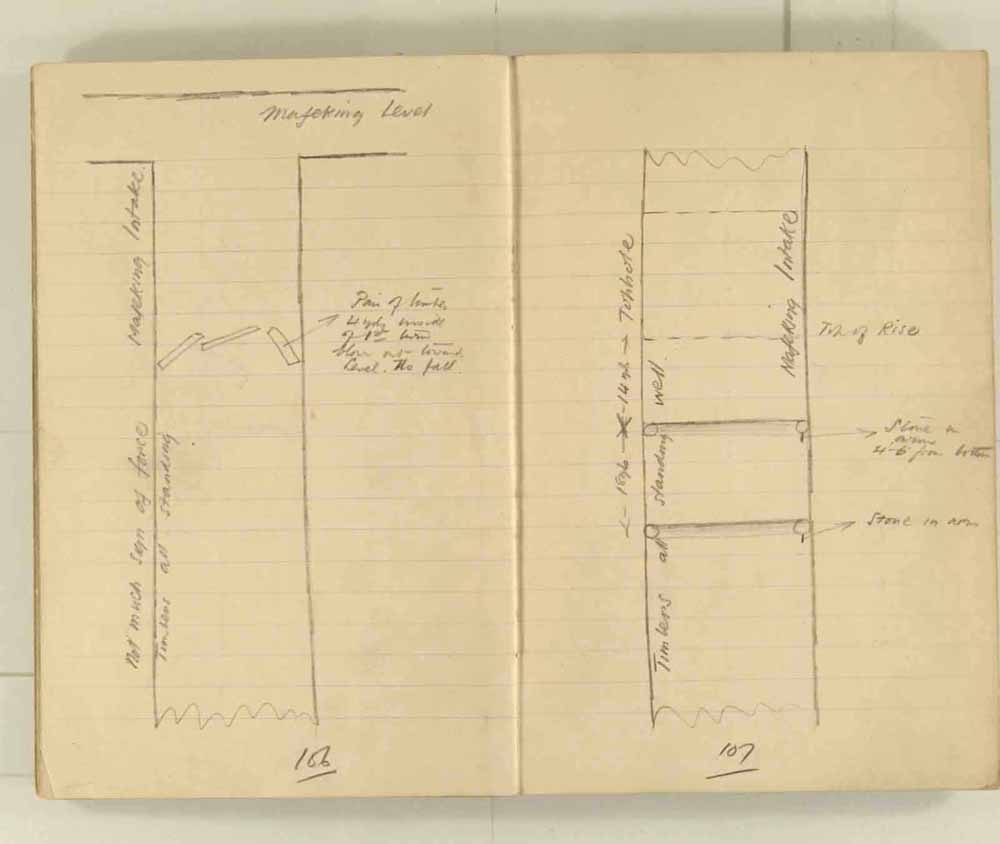 Mafeking Level
Mafeking Intake
Pair of timber
4 yds inside
of 1st
blown out toward
Level. No fall
Not much sign of force
Timbers all standing
106
Tophole
Mafeking Intake
Top of Rise
14 yds
18 yds
Timbers all standing well
Stone in
arm
4-6 from bottom
Stone in arm
107